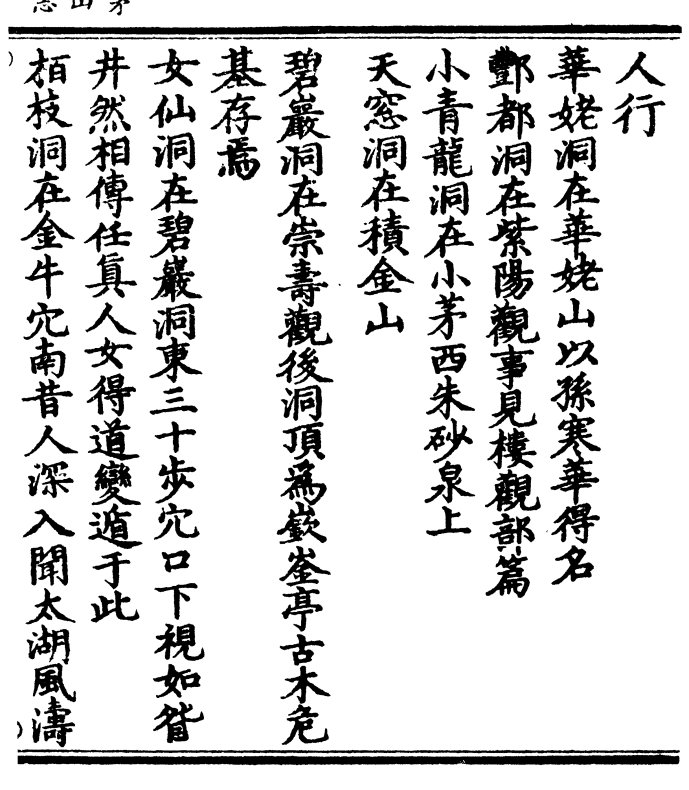 人行
華姥洞在華姥山以孫寒華得名
酆都洞在紫陽觀事見樓觀部篇
小青龍洞在小茅西朱砂泉上
天窓洞在積金山
碧巖洞在崇壽觀後洞頂爲嶔崟亭古木危
基存焉
女仙洞在碧巖洞東三十步穴口下視如眢
井然相傳任眞人女得道變遁于此
栢枝洞在金牛穴南昔人深入聞太湖風濤